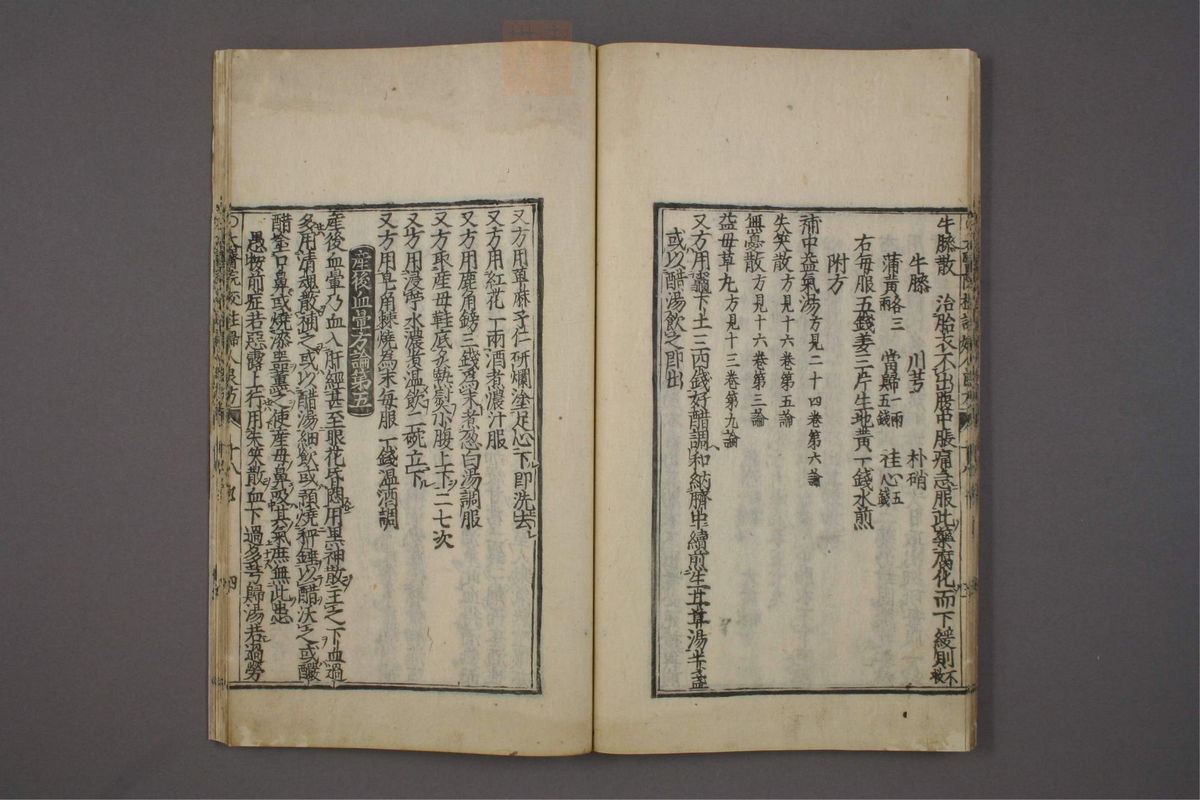 牛膝散　治胎衣不出腹中脹痛急服此藥腐化而下緩則不救
牛膝　川芎　朴硝
蒲黃各三兩　當歸一兩五錢　桂心五錢
右每服五錢姜三片生地黃一錢水煎
附方
補中益氣湯方見二十四卷第六論
失笑散方見十六卷第五論
無憂散方見十六卷第三論
益母草丸方見十三卷第九論
又方用竈下土三四錢好醋調和納臍中續煎生甘草湯半盞
或以醋湯飲之即出
又方用萆麻子仁研爛塗足心下即洗去
又方用紅花一兩酒煮濃汁服
又方用鹿角鎊三錢爲末煮葱白湯調服
又方取產母鞋底炙熱熨小腹上下二七次
又方用浸苧水濃煮溫飲二碗立下
又方用皂角棘燒爲末每服一錢溫酒調
產後血暈方論第五
產後血暈乃血入肝經甚至眼花昏悶用黑神散主之下血過
多用清魂散補之或以醋湯細飲或預燒秤錘以醋沃之或釅
醋塗口鼻或燒漆器薰之使產母鼻吸其氣庶無此患
愚按前症若惡露上行用失笑散血下過多芎歸湯若過勞
十八 四